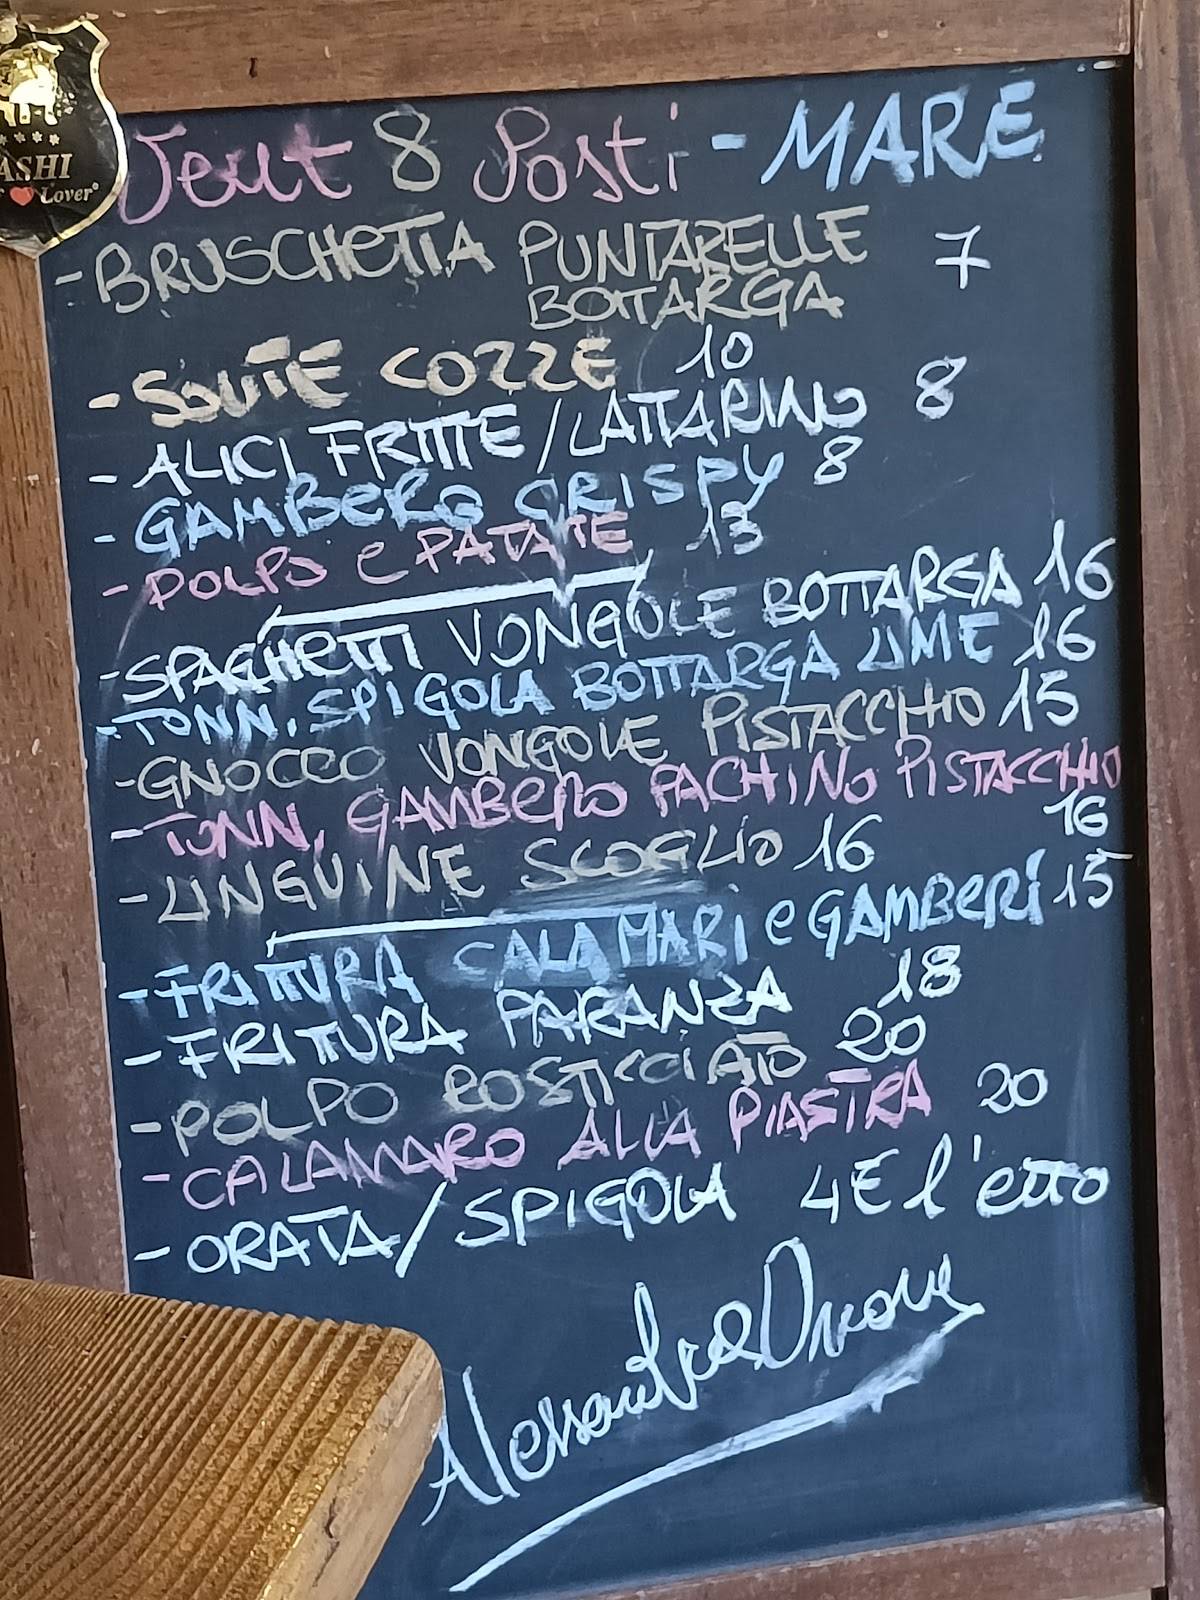 ASHI
Lover®
Vent 8 Posti - MARE
- BRUSCHETTA PUNTARELLE 7
BOTTARGA
- SOUTÈ COZZE 10
- ALICI FRITTE / LATTARINO 8
- GAMBERO CRISPY 8
- POLPO e PATATE 13
- SPAGHETTI VONGOLE BOTTARGA 16
- TONN. SPIGOLA BOTTARGA LIME 16
- GNOCCO VONGOLE PISTACCHIO 15
- TONN. GAMBERO PACHINO PISTACCHIO
16
- LINGUINE SCOGLIO 16
- FRITTURA CALAMARI e GAMBERI 15
- FRITTURA PARANZA 18
- POLPO ROSTICCIATO 20
- CALAMARO ALLA PIASTRA 20
- ORATA / SPIGOLA 4E l'etto